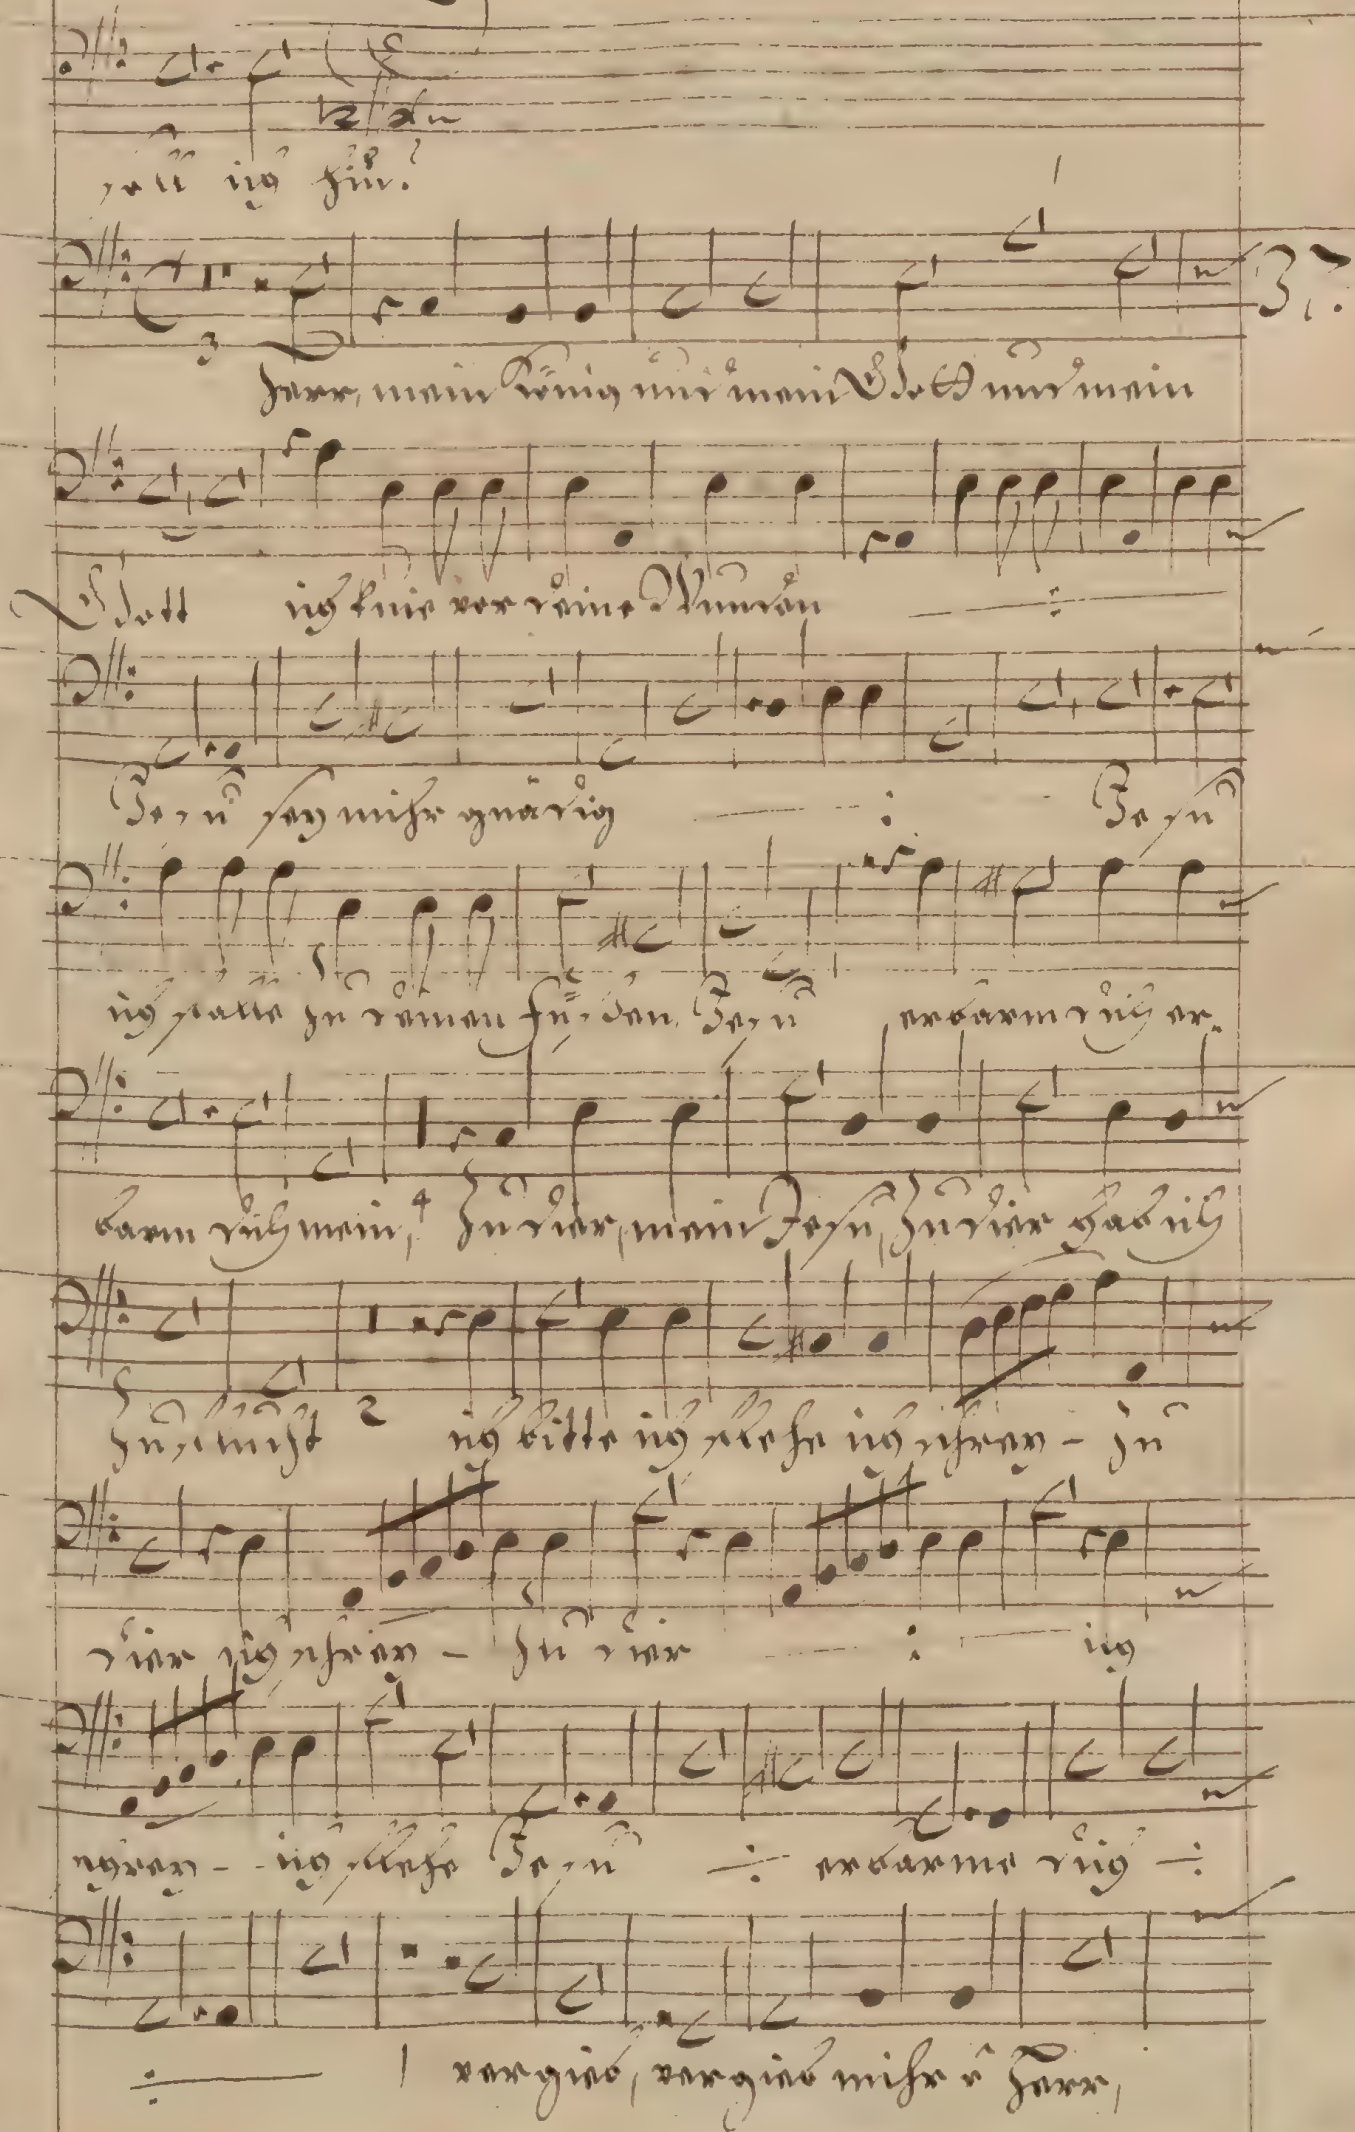 soll ich hin?
37.
3
Herr, mein König und mein Gott und mein
Gott ich knie vor deine Wunden ÷
Jesu sey mihr gnädig : Jesu
ich falle zu deinen Füßen, Jesu erbarm dich er-
barm dich mein, 4 Zu dier, mein Jesu, Zu dier hab ich
Zuflucht 2 ich bitte ich flehe ich schrey - zu
dier ich schrey - zu dier : ich
schrey - ich flehe Jesu ÷ erbarme dich ÷
÷ 1 vergieb, vergieb mihr o Herr,